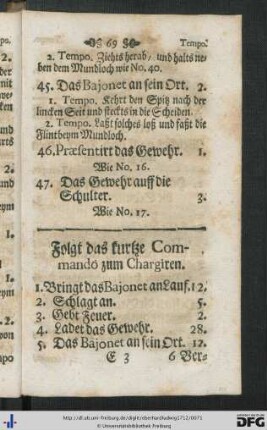 69 Tempo.
2. Tempo. Ziehts herab / und halts ne-
ben dem Mundloch wie No. 40.
45. Das Bajonet an sein Ort. 2.
1. Tempo. Kehrt den Spitz nach der
lincken Seit und steckts in die Scheiden.
2. Tempo. Laßt solches loß und faßt die
Flintbeym Mundloch.
46. Præsentirt das Gewehr. 1.
Wie No. 16.
47. Das Gewehr auff die
Schulter. 3.
Wie No. 17.
Folgt das kurtze Com-
mando zum Chargiren.
1. Bringt das Bajonet an Lauf. 12.
2. Schlagt an. 5.
3. Gebt Feuer. 2.
4. Ladet das Gewehr. 28.
5. Das Bajonet an sein Ort. 12.
E 3 6 Ver-
http://dl.ub.uni-freiburg.de/diglit/eberhardludwig1712/0071
© Universitätsbibliothek Freiburg
gefördert durch die
DFG